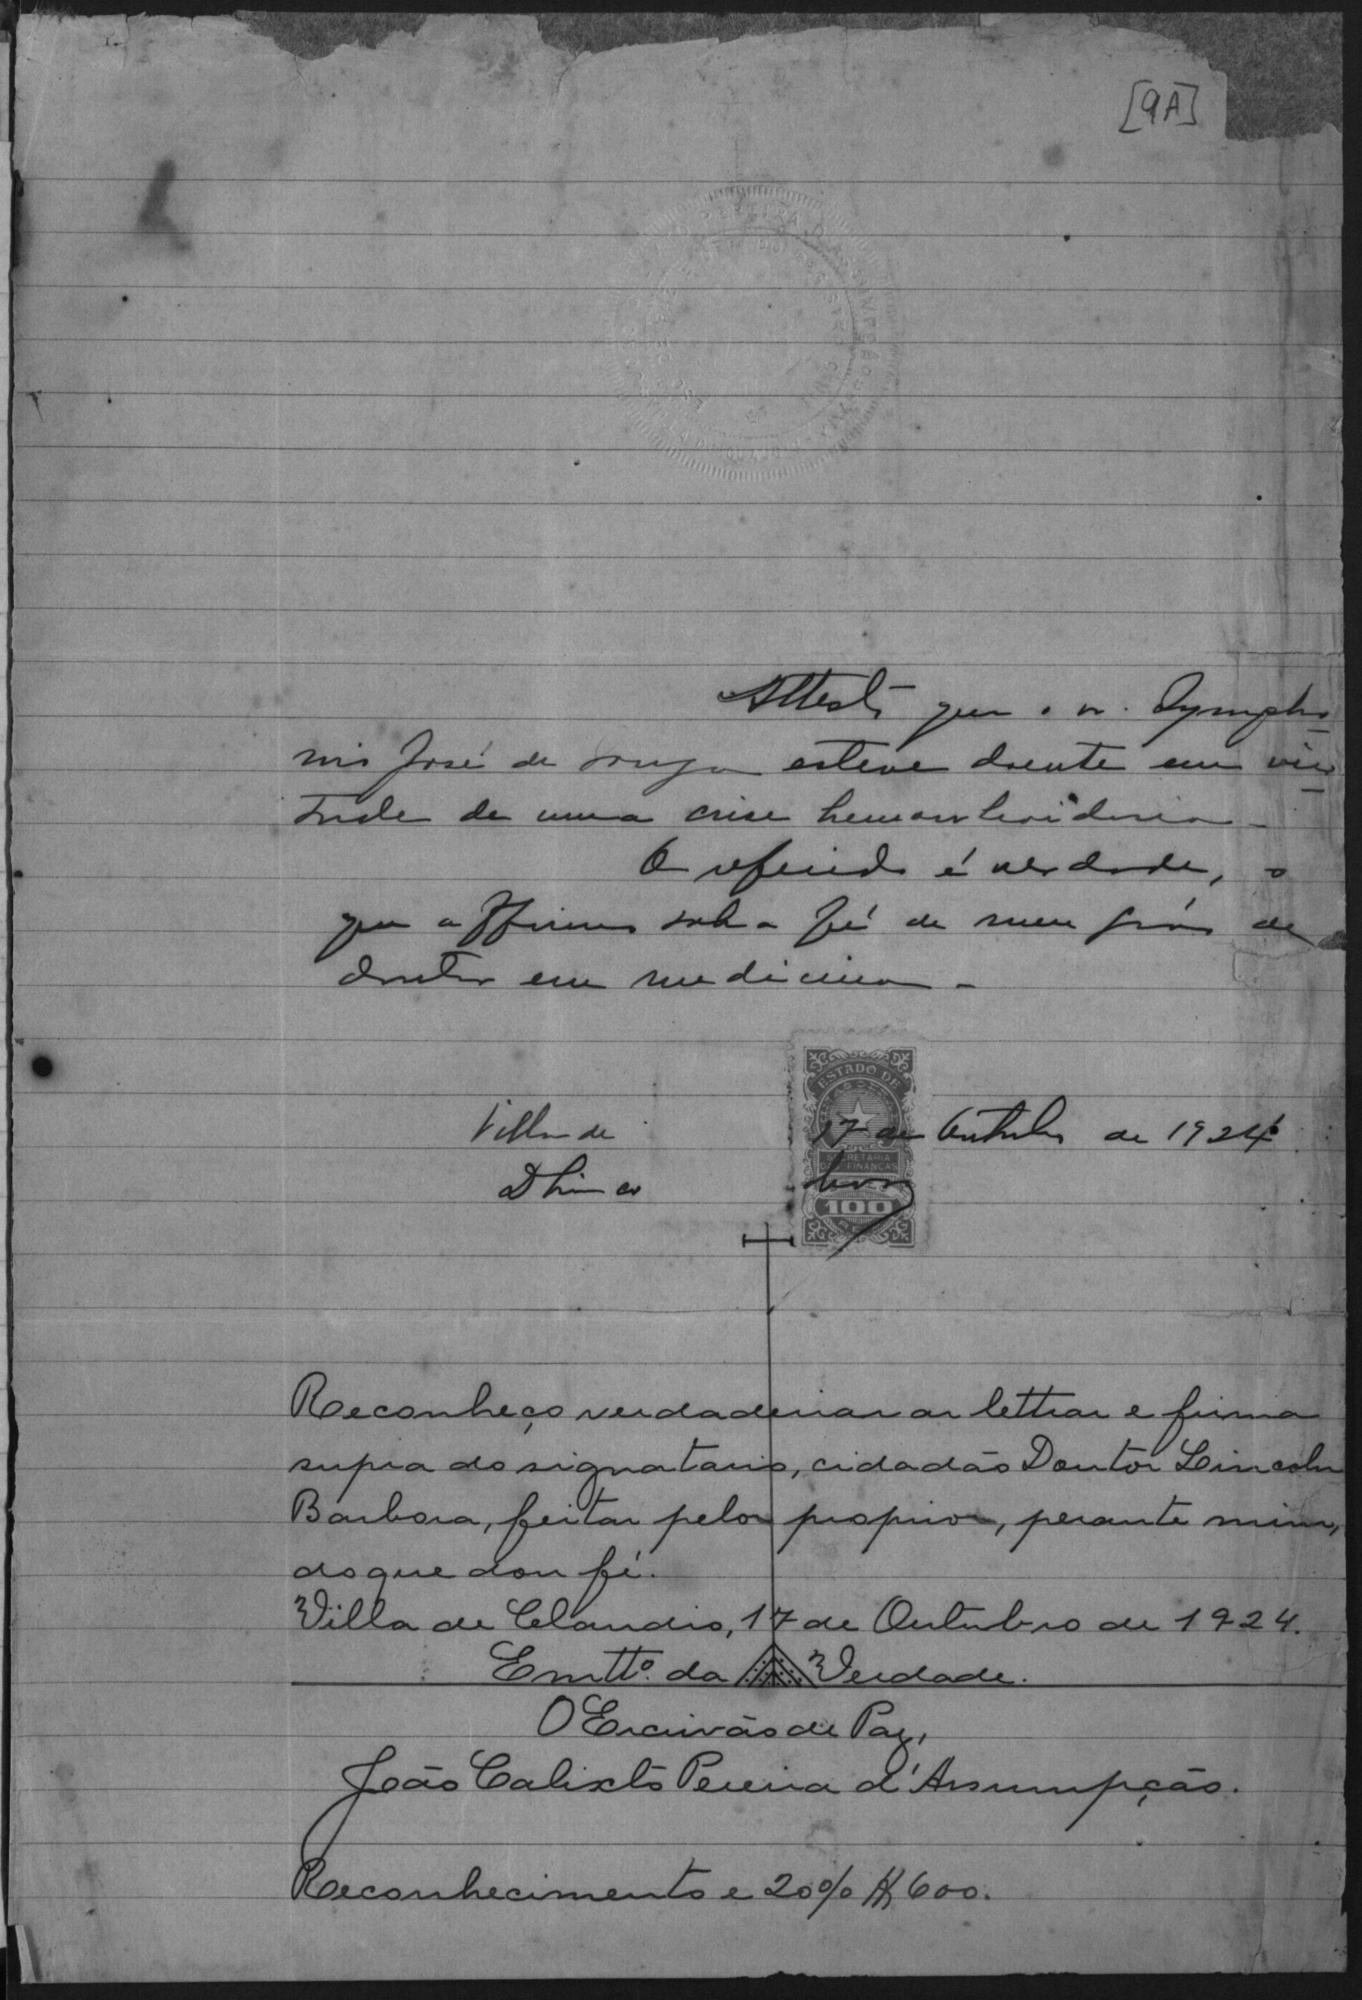 [9A]
Attesto que o sr. Symphro
nio José de Souza esteve doente em vir
tude de uma crise hemorrhoidaria
O referido é verdade, o
que affirmo sob a fé de meu gráo de
doutor em medicina
Villa de 17 de Outubro de 1924
ESTADO DE
SECRETARIA
DAS FINANÇAS
100
Reconheço verdadeiras as lettras e firma
supra do signatario, cidadão Doutor Lincoln
Barbosa, feitas pelo proprio, perante mim,
do que dou fé.
Villa de Claudio, 17 de Outubro de 1924.
Em tto. da Verdade.
O Escrivão de Paz,
João Calixto Pereira d'Assumpção.
Reconhecimento e 20% R$ 600.